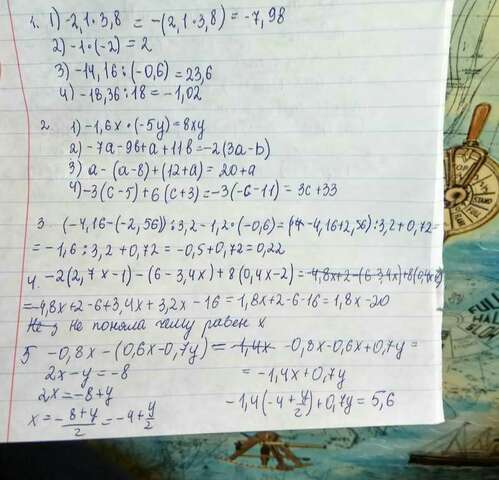 1. 1) -2,1·3,8 = -(2,1·3,8) = -7,98
2) -1·(-2) = 2
3) -14,16:(-0,6) = 23,6
4) -18,36:18 = -1,02
2. 1) -1,6x·(-5y) = 8xy
2) -7a-9b+a+11b = -2(3a-b)
3) a-(a-8)+(12+a) = 20+a
4) -3(c-5)+6(c+3) = -3(-c-11) = 3c+33
3. (-4,16-(-2,56)):3,2-1,2·(-0,6) = (-4,16+2,56):3,2+0,72=
= -1,6:3,2+0,72 = -0,5+0,72 = 0,22
4. -2(2,7x-1)-(6-3,4x)+8(0,4x-2) = -4,8x+2-(6-3,4x)+8(0,4x-2)
= -4,8x+2-6+3,4x+3,2x-16 = 1,8x+2-6-16 = 1,8x-20
Не поняла чему равен x
5 -0,8x-(0,6x-0,7y) = -1,4x -0,8x-0,6x+0,7y =
2x-y = -8 = -1,4x+0,7y
2x = -8+y -1,4(-4+y/2)+0,7y = 5,6
x = -8+y/2 = -4+y/2
STAND
FULL
HALF
SLOW